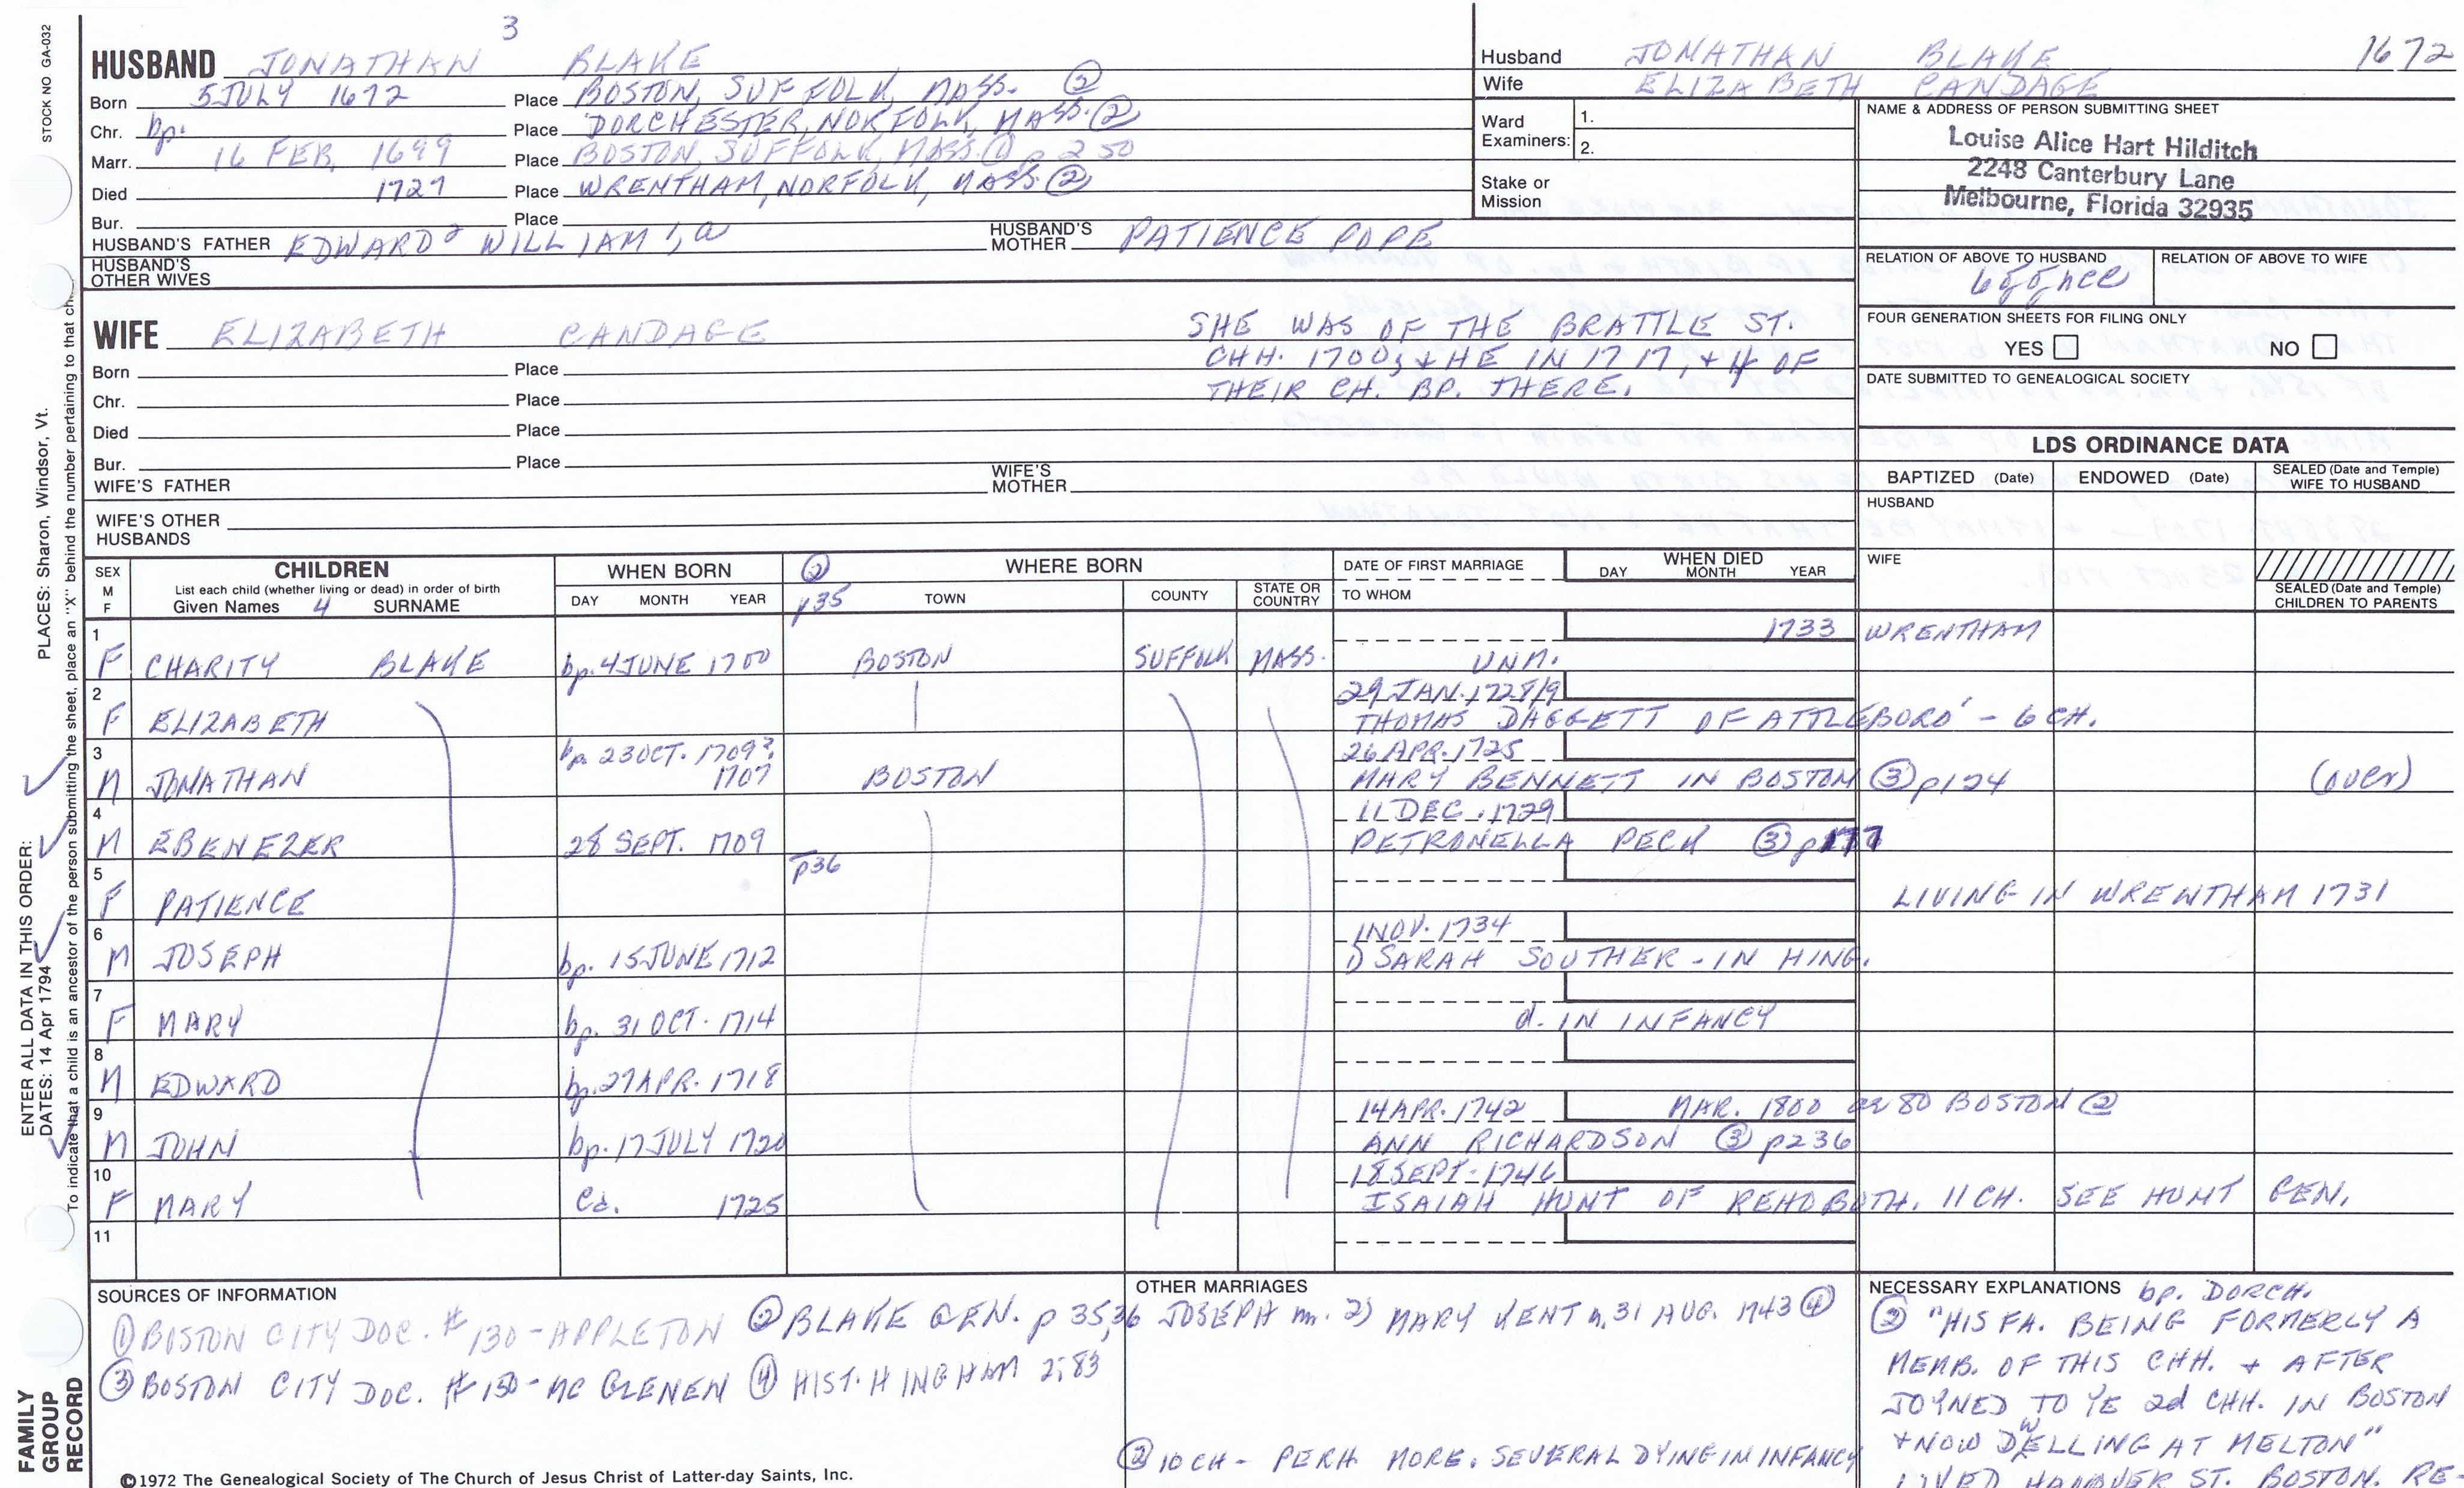 3
HUSBAND JONATHAN BLAKE
Born 5 JULY 1672 Place BOSTON, SUFFOLK, MASS. ②
Chr. bp. Place DORCHESTER, NORFOLK, MASS. ②
Marr. 16 FEB, 1699 Place BOSTON, SUFFOLK, MASS. ① p 250
Died 1727 Place WRENTHAM, NORFOLK, MASS. ②
Bur. Place
HUSBAND'S FATHER EDWARD² WILLIAM¹, a HUSBAND'S MOTHER PATIENCE POPE
HUSBAND'S OTHER WIVES
Husband JONATHAN BLAKE 1672
Wife ELIZABETH CANDAGE
Ward Examiners: 1.
2.
Stake or Mission
NAME & ADDRESS OF PERSON SUBMITTING SHEET
Louise Alice Hart Hilditch
2248 Canterbury Lane
Melbourne, Florida 32935
RELATION OF ABOVE TO HUSBAND RELATION OF ABOVE TO WIFE
FOUR GENERATION SHEETS FOR FILING ONLY
YES NO
DATE SUBMITTED TO GENEALOGICAL SOCIETY
WIFE ELIZABETH CANDAGE
SHE WAS OF THE BRATTLE ST.
CHH. 1700, & HE IN 1717, & 4 OF
THEIR CH. BP. THERE.
Born Place
Chr. Place
Died Place
Bur. Place
WIFE'S FATHER WIFE'S MOTHER
WIFE'S OTHER HUSBANDS
LDS ORDINANCE DATA
BAPTIZED (Date) ENDOWED (Date) SEALED (Date and Temple) WIFE TO HUSBAND
HUSBAND
WIFE
SEALED (Date and Temple) CHILDREN TO PARENTS
SEX M F
CHILDREN
List each child (whether living or dead) in order of birth
Given Names 4 SURNAME
WHEN BORN
DAY MONTH YEAR
② p35
WHERE BORN
TOWN COUNTY STATE OR COUNTRY
DATE OF FIRST MARRIAGE
TO WHOM
WHEN DIED
DAY MONTH YEAR
1 1733 WRENTHAM
F CHARITY BLAKE bp. 4 JUNE 1700 BOSTON SUFFOLK MASS. UNM.
2 29 JAN. 1728/9
F ELIZABETH THOMAS DAGGETT OF ATTLEBORO' - 6 CH.
3 bp. 23 OCT. 1709? 26 APR. 1725
M JONATHAN 1707 BOSTON MARY BENNETT IN BOSTON ③ p124 (over)
4 11 DEC. 1729
M EBENEZER 28 SEPT. 1709 PETRONELLA PECK ③ p177
5 p36
F PATIENCE LIVING IN WRENTHAM 1731
6 1 NOV. 1734
M JOSEPH bp. 15 JUNE 1712 1) SARAH SOUTHER - IN HING.
7
F MARY bp. 31 OCT. 1714 d. IN INFANCY
8
M EDWARD bp. 27 APR. 1718
9 14 APR. 1742 MAR. 1800 ae 80 BOSTON ②
M JOHN bp. 17 JULY 1720 ANN RICHARDSON ③ p236
10 18 SEPT. 1746
F MARY Ca. 1725 ISAIAH HUNT OF REHOBOTH. 11 CH. SEE HUNT GEN.
11
SOURCES OF INFORMATION
① BOSTON CITY DOC. # 130 - APPLETON ② BLAKE GEN. p 35,36
③ BOSTON CITY DOC. # 150 - MC GLENEN ④ HIST. HINGHAM 2:83
OTHER MARRIAGES
JOSEPH m. 2) MARY KENT 31 AUG. 1743 ④
② 10 CH - PERH. MORE. SEVERAL DYING IN INFANCY
NECESSARY EXPLANATIONS bp. DORCH.
② "HIS FA. BEING FORMERLY A
MEMB. OF THIS CHH. & AFTER
JOYNED TO YE 2d CHH. IN BOSTON
& NOW DWELLING AT MELTON"
LIVED HANOVER ST. BOSTON. RE-
©1972 The Genealogical Society of The Church of Jesus Christ of Latter-day Saints, Inc.
STOCK NO GA-032
PLACES: Sharon, Windsor, Vt.
To indicate that a child is an ancestor of the person submitting the sheet, place an "X" behind the number pertaining to that
ENTER ALL DATA IN THIS ORDER:
DATES: 14 Apr 1794
FAMILY GROUP RECORD